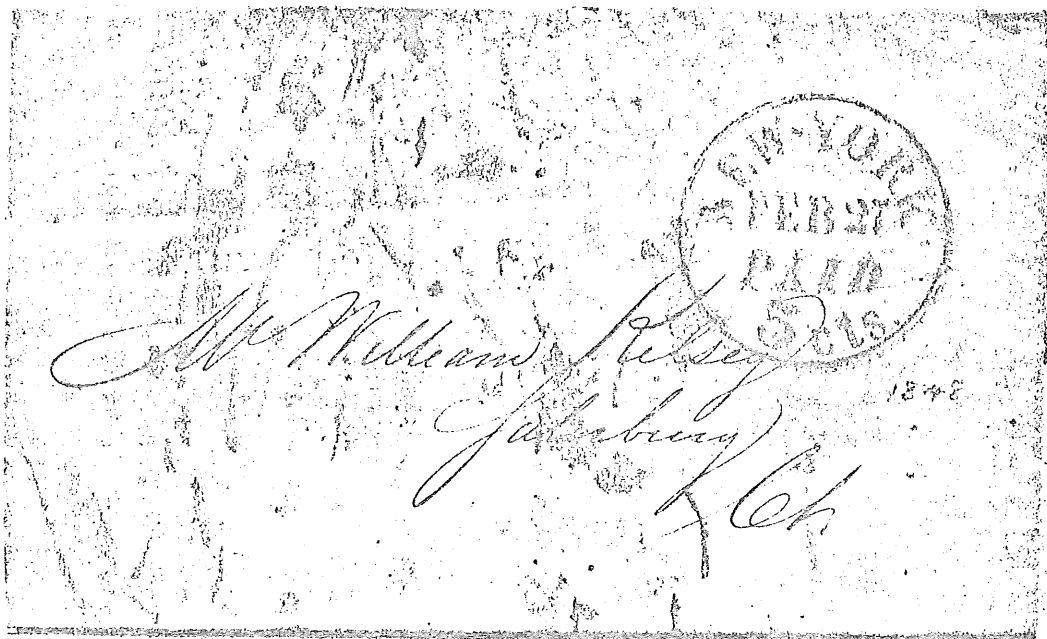 NEW-YORK
FEB 27
PAID
5 cts
Mr William Kelsey
1848
Salisbury
Ct